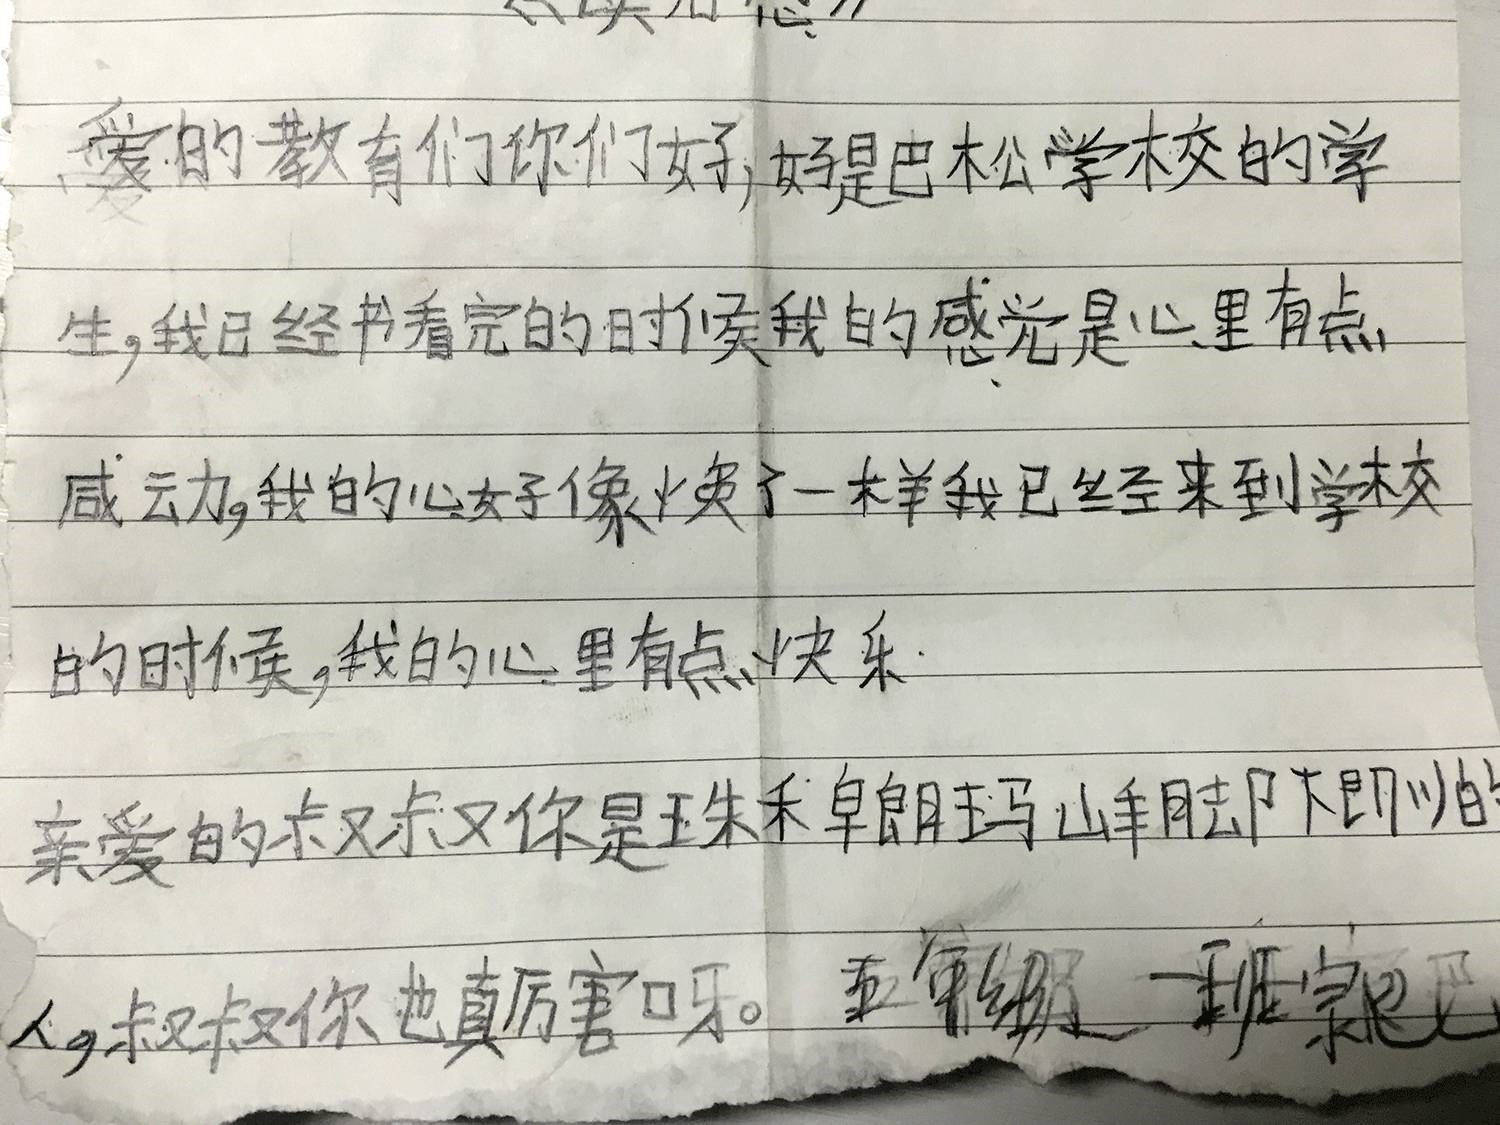 《读后感》
爱的教育们你们好,好是巴松学校的学
生,我已经书看完的时候我的感觉是心里有点
感动,我的心好像爽了一样我已经来到学校
的时候,我的心里有点快乐.
亲爱的叔叔你是珠 朗玛山峰 的
人,叔叔你也真厉害呀。 五年级 一班